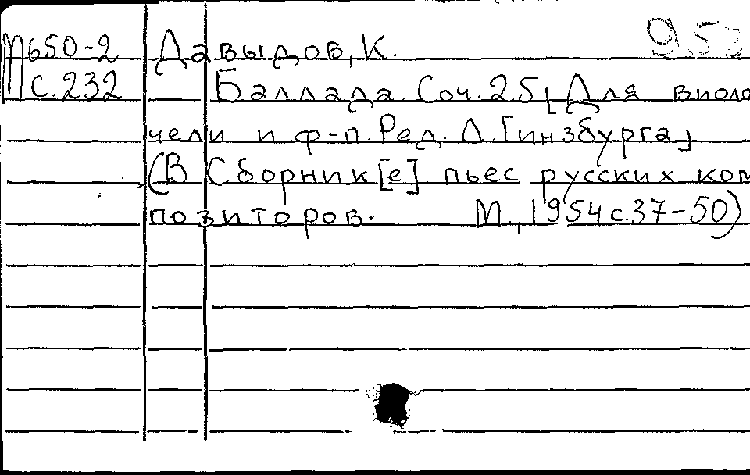 М650-2 Давыдов, К. 952
С.232 Баллада. Соч. 25. [Для виоло
чели и ф-п. Ред. Л. Гинзбурга]
(В Сборник[е] пьес русских ком
позиторов. М., 1954 с.37-50)